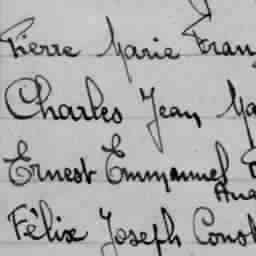 Pierre Marie Fran
Charles Jean Ma
Ernest Emmanuel
Félix Joseph Const